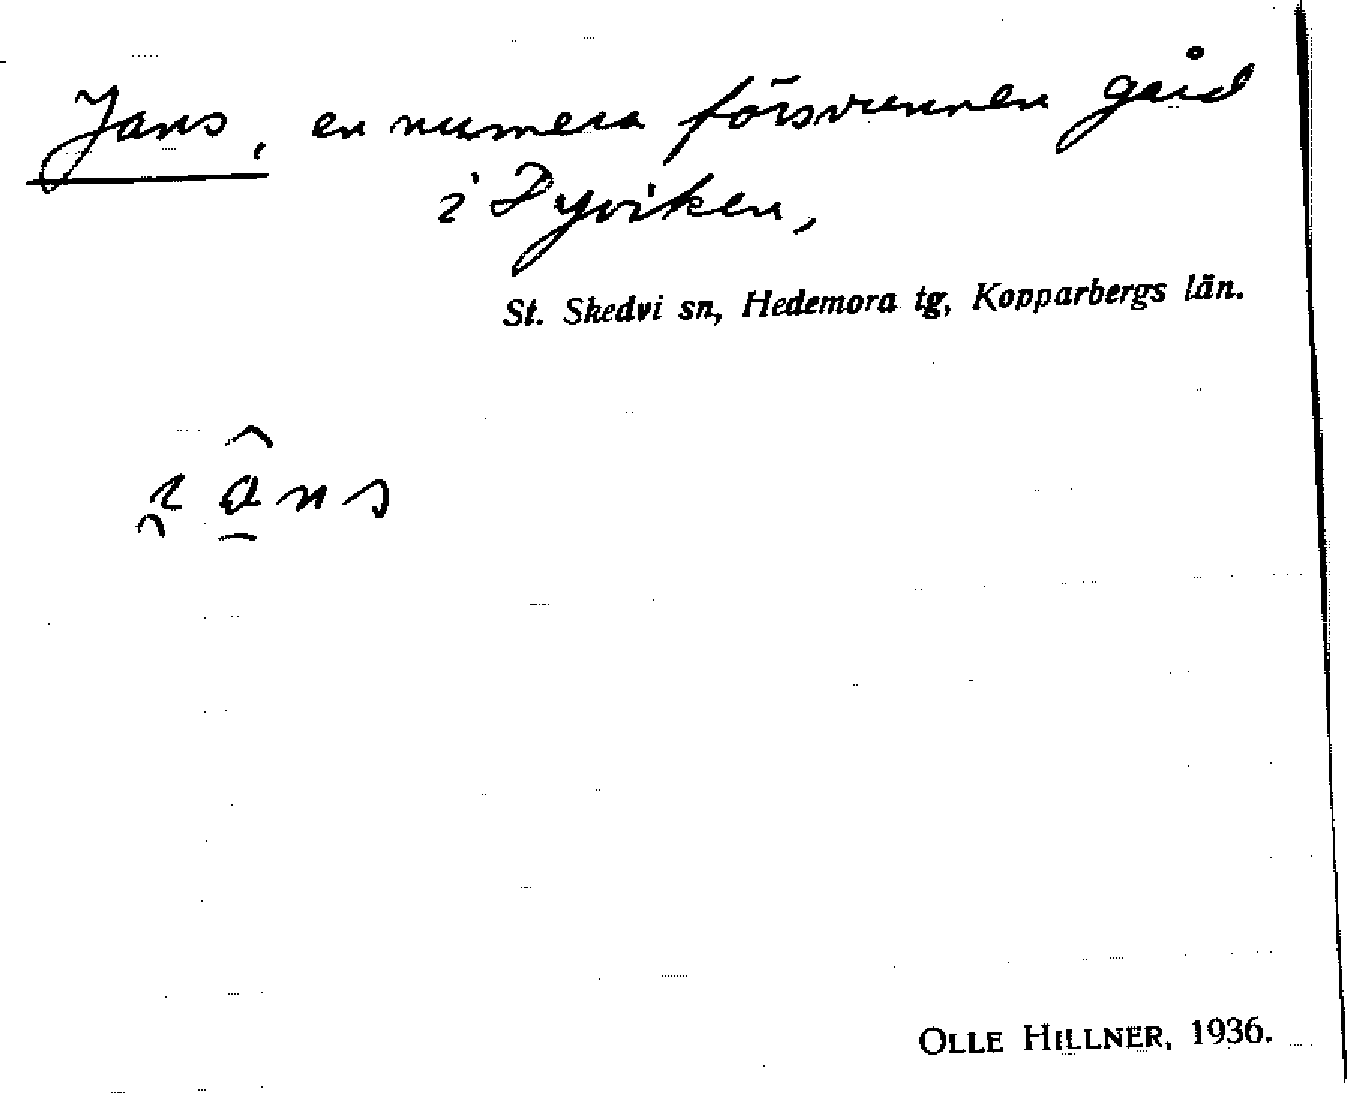 Jans, en numera försvunnen gård
i Dyviken,
St. Skedvi sn, Hedemora tg, Kopparbergs län.
OLLE HILLNER, 1936.